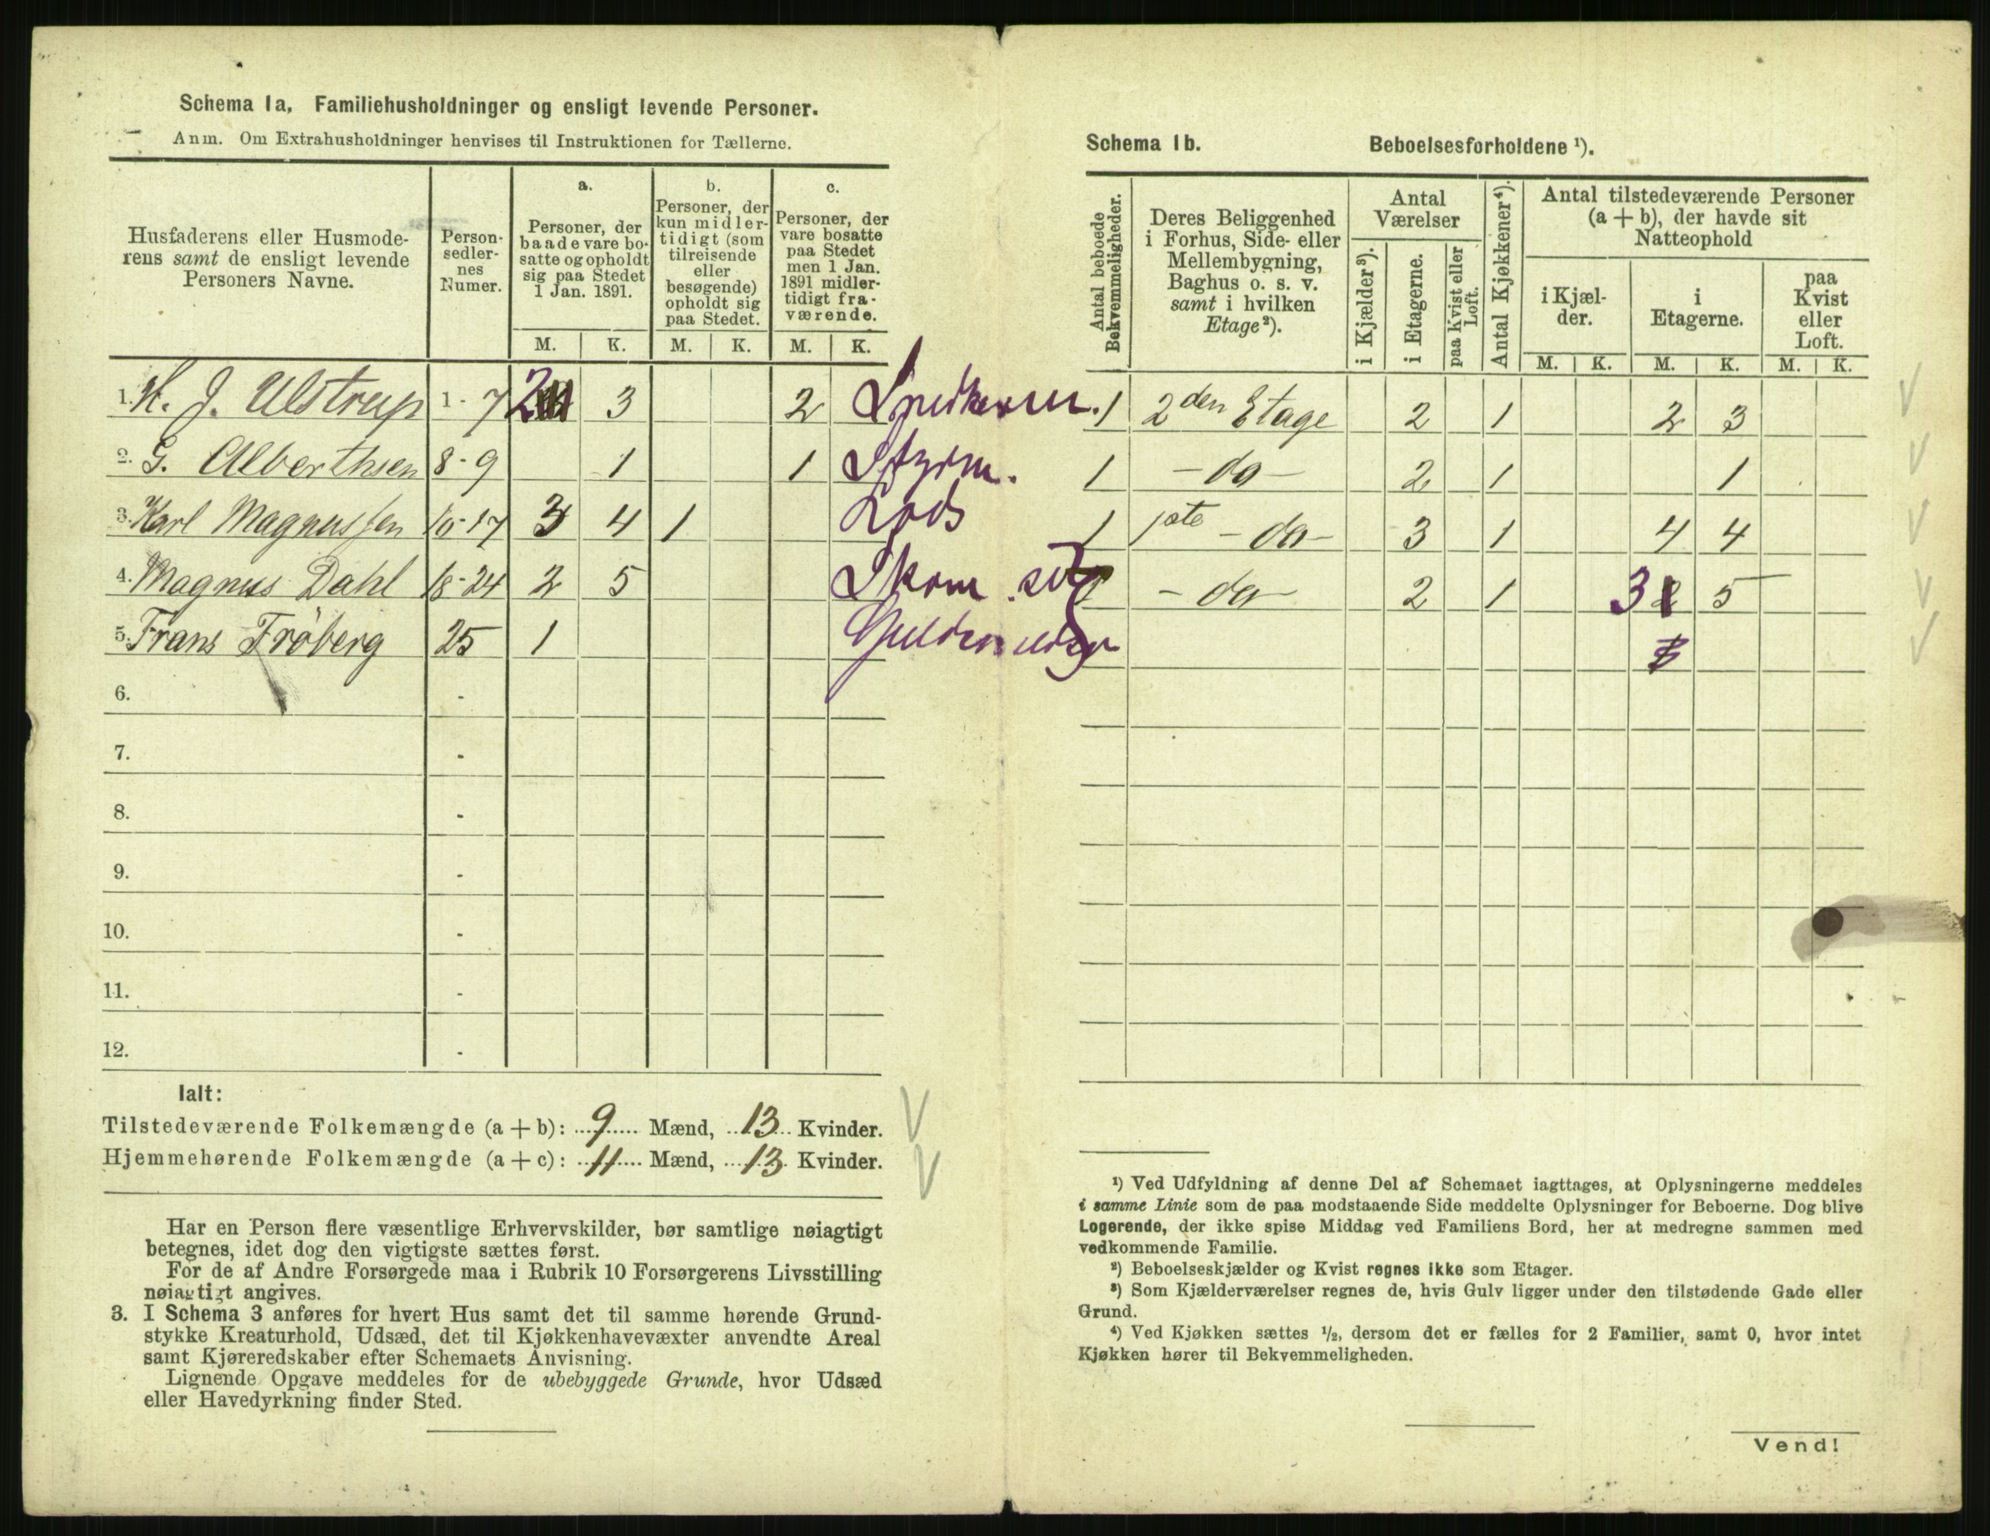 Schema 1a, Familiehusholdninger og ensligt levende Personer.
Anm. Om Extrahusholdninger henvises til Instruktionen for Tællerne.
Husfaderens eller Husmoderens samt de ensligt levende Personers Navne.
Person-sedler-nes Numer.
a.
Personer, der baade vare bo-satte og opholdt sig paa Stedet 1 Jan. 1891.
b.
Personer, der kun midler-tidigt (som tilreisende eller besøgende) opholdt sig paa Stedet.
c.
Personer, der vare bosatte paa Stedet men 1 Jan. 1891 midler-tidigt fra-værende.
M. K. M. K. M. K.
1. H. J. Ulstrup 1-7 2 3 2
2. G. Alberthsen 8-9 1 1 Styrm.
3. Karl Magnussen 10-17 3 4 1 Lods
4. Magnus Dahl 18-24 2 5 Skom.
5. Frans Fröberg 25 1
6. -
7. -
8. -
9. -
10. -
11. -
12. -
Ialt:
Tilstedeværende Folkemængde (a + b): 9 Mænd, 13 Kvinder.
Hjemmehørende Folkemængde (a + c): 11 Mænd, 13 Kvinder.
Har en Person flere væsentlige Erhvervskilder, bør samtlige nøiagtigt
betegnes, idet dog den vigtigste sættes først.
For de af Andre Forsørgede maa i Rubrik 10 Forsørgerens Livsstilling
nøiagtigt angives.
3. I Schema 3 anføres for hvert Hus samt det til samme hørende Grund-
stykke Kreaturhold, Udsæd, det til Kjøkkenhavevæxter anvendte Areal
samt Kjøreredskaber efter Schemaets Anvisning.
Lignende Opgave meddeles for de ubebyggede Grunde, hvor Udsæd
eller Havedyrkning finder Sted.
Schema 1b. Beboelsesforholdene ¹).
Antal beboede Bekvemmeligheder.
Deres Beliggenhed i Forhus, Side- eller Mellembygning, Baghus o. s. v. samt i hvilken Etage²).
Antal Værelser
i Kjælder³).
i Etagerne.
paa Kvist eller Loft.
Antal Kjøkkener⁴).
Antal tilstedeværende Personer (a + b), der havde sit Natteophold
i Kjæl-der.
i Etagerne.
paa Kvist eller Loft.
M. K. M. K. M. K.
1 2den Etage 2 1 2 3
1 - do - 2 1 1
1 1ste - do - 3 1 4 4
- do - 2 1 3 5
¹) Ved Udfyldning af denne Del af Schemaet iagttages, at Oplysningerne meddeles
i samme Linie som de paa modstaaende Side meddelte Oplysninger for Beboerne. Dog blive
Logerende, der ikke spise Middag ved Familiens Bord, her at medregne sammen med
vedkommende Familie.
²) Beboelseskjælder og Kvist regnes ikke som Etager.
³) Som Kjælderværelser regnes de, hvis Gulv ligger under den tilstødende Gade eller
Grund.
⁴) Ved Kjøkken sættes ½, dersom det er fælles for 2 Familier, samt 0, hvor intet
Kjøkken hører til Bekvemmeligheden.
Vend!